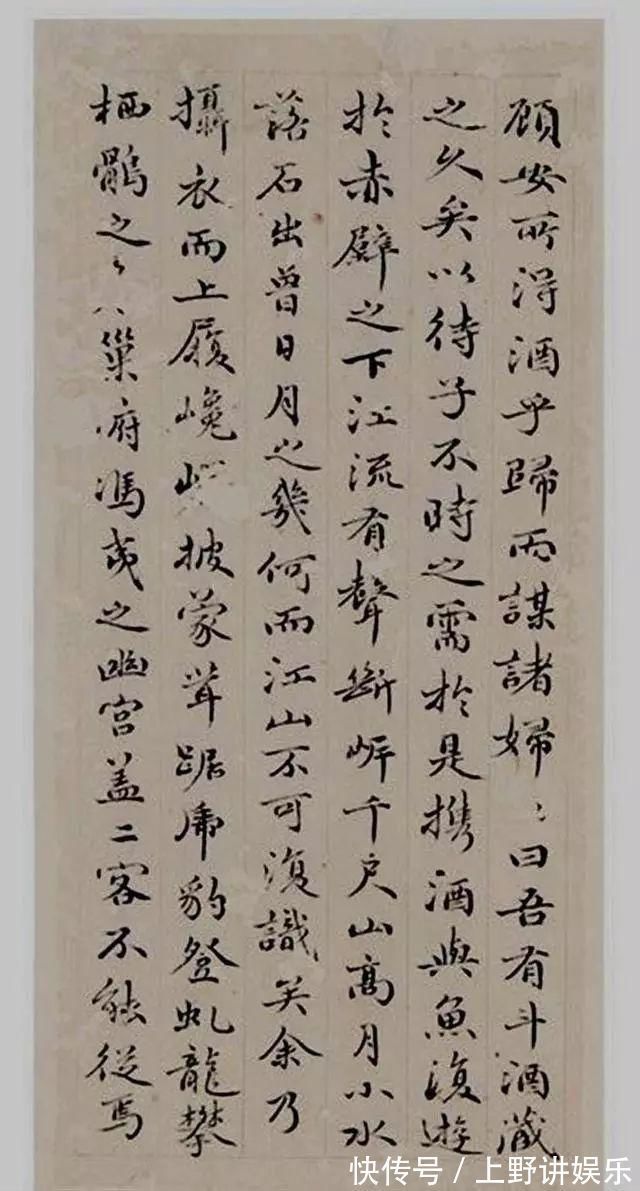 顧安所得酒乎歸而謀諸婦〻曰吾有斗酒藏
之久矣以待子不時之需於是携酒與魚復遊
於赤壁之下江流有聲斷岸千尺山高月小水
落石出曾日月之幾何而江山不可復識矣余乃
攝衣而上履巉披蒙茸踞虎豹登虬龍攀
栖鶻之巢府馮夷之幽宫盖二客不能從焉
快传号/上野讲娱乐